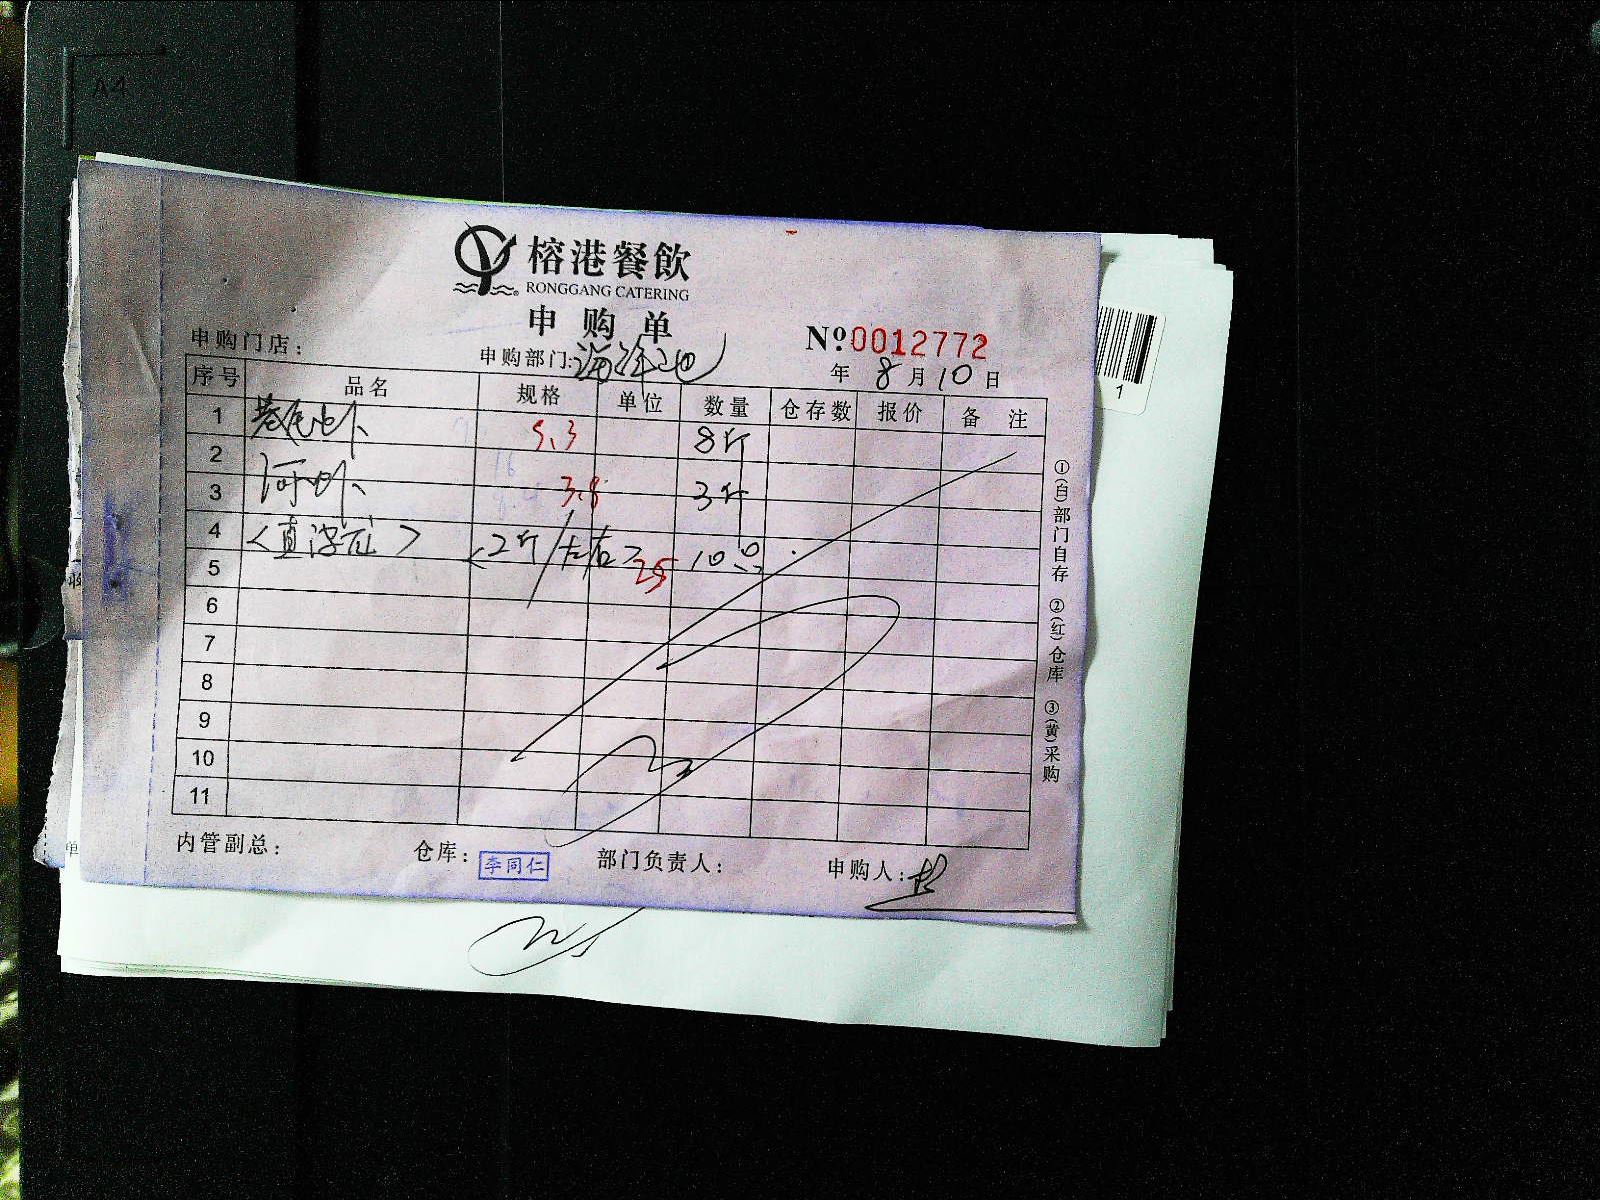 A4
榕港餐飲
RONGGANG CATERING
申购单
Nº 0012772
申购门店：
申购部门：海鲜池
年 8 月 10 日
序号 品名 规格 单位 数量 仓存数 报价 备注
1 5.3 8斤
2
3 河虾 3.8 3斤
4
5 <2斤/左右> 25 10只
6
7
8
9
10
11
内管副总：
仓库：李同仁
部门负责人：
申购人：
①(白)部门自存 ②(红)仓库 ③(黄)采购
1
单